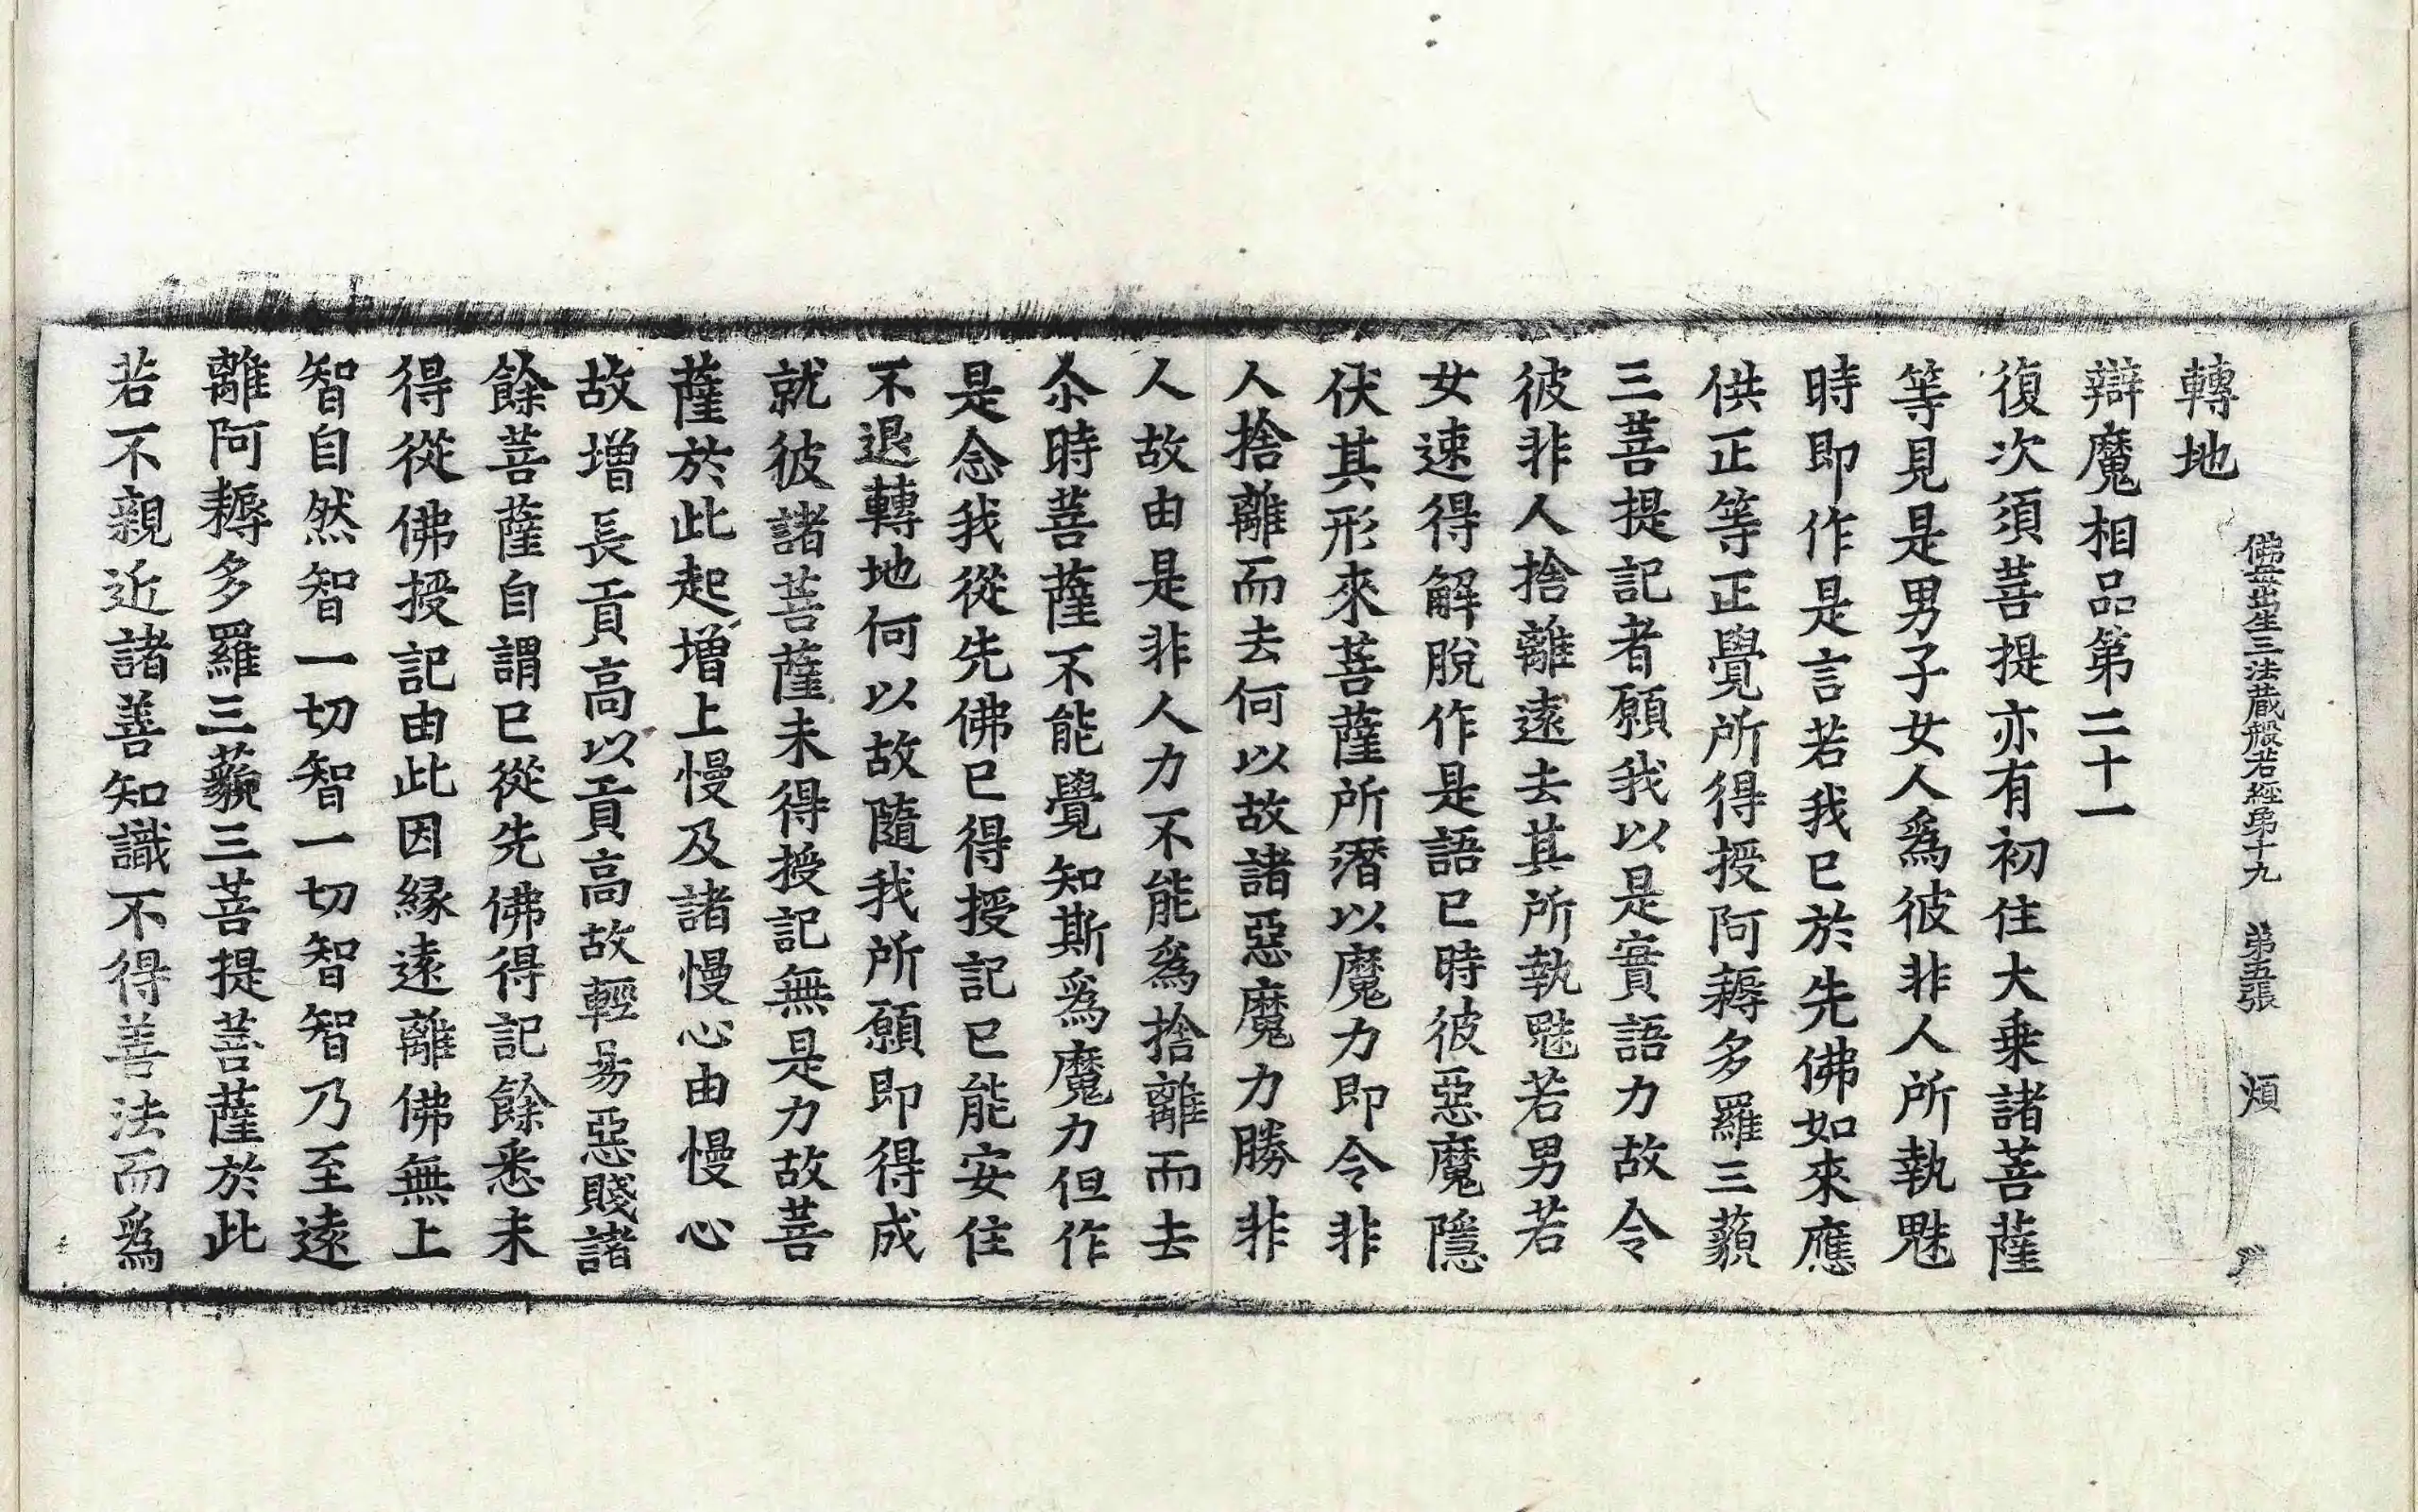 佛母出生三法藏般若經第十九　第五張　煩
轉地
辯魔相品第二十一
復次須菩提亦有初住大乗諸菩薩
等見是男子女人爲彼非人所執魅
時即作是言若我已於先佛如來應
供正等正覺所得授阿耨多羅三藐
三菩提記者願我以是實語力故令
彼非人捨離遠去其所執魅若男若
女速得解脫作是語已時彼惡魔隱
伏其形來菩薩所潛以魔力即令非
人捨離而去何以故諸惡魔力勝非
人故由是非人力不能爲捨離而去
尒時菩薩不能覺知斯爲魔力但作
是念我從先佛已得授記已能安住
不退轉地何以故隨我所願即得成
就彼諸菩薩未得授記無是力故菩
薩於此起增上慢及諸慢心由慢心
故增長貢高以貢高故輕易惡賤諸
餘菩薩自謂已從先佛得記餘悉未
得從佛授記由此因縁遠離佛無上
智自然智一切智一切智智乃至遠
離阿耨多羅三藐三菩提菩薩於此
若不親近諸善知識不得善法而爲